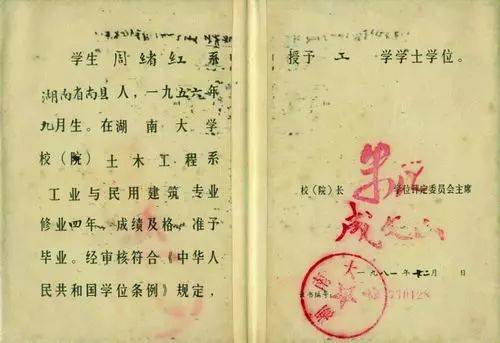 学生 周绪红 系
湖南省南县人，一九五六年
九月生。在湖南大学
校（院）土木工程系
工业与民用建筑专业
修业四年、成绩及格，准予
毕业。经审核符合《中华人
民共和国学位条例》规定，
授予 工 学学士学位。
校（院）长 学位评定委员会主席
一九八一年十二月 日
证书编号 770128
湖南大